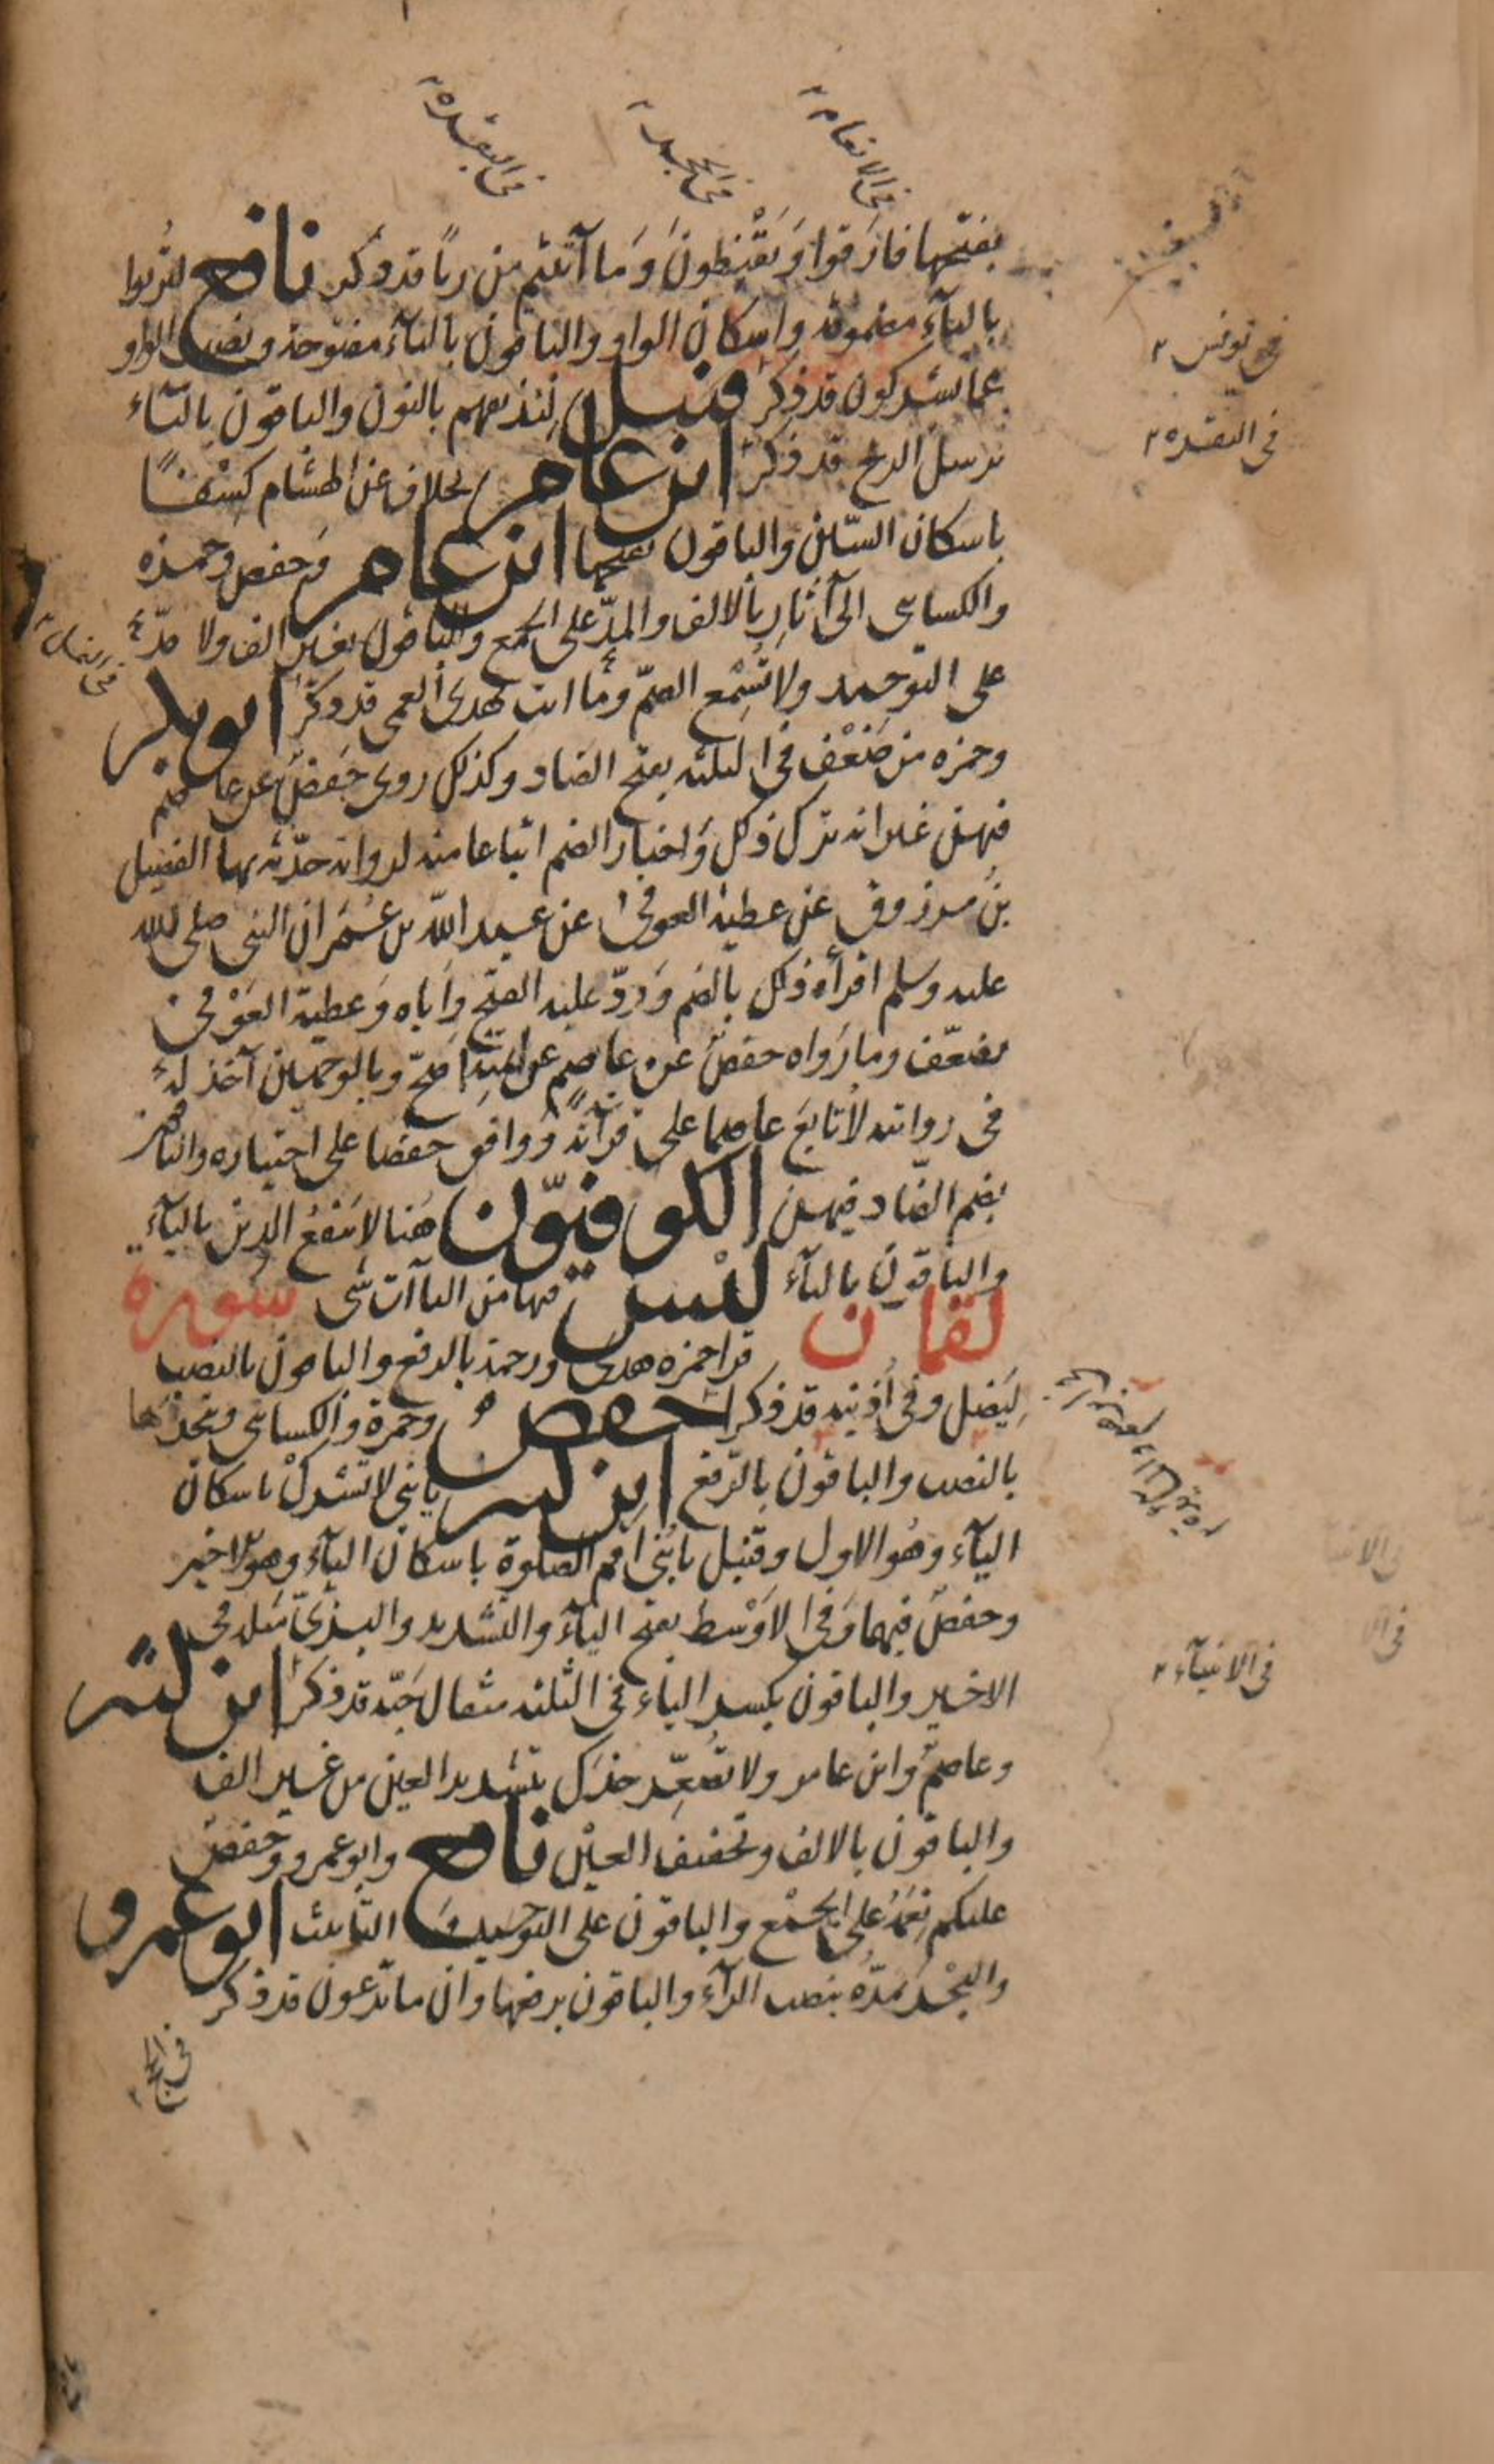 في الانعام
في الحجر
في البقرة
بفتحها فارَقوا وَيَقْنِطُونَ وَمَا آتيتم من ربًا قد ذكر نافع لتُربوا
بالتآء مضمومة واسكان الواو والباقون باليآء مفتوحة ونصب الواو
عما يشركون قد ذكر قنبل لنذيقهم بالنون والباقون باليآء
يرسل الريح قد ذكر ابن عامر بخلاف عن هشام كِسْفًا
باسكان السّين والباقون بفتحها ابن عامر وَحفص وحمزه
والكسائي الى آثارِ بالالف والمدّ على الجمع والباقون بغير الف ولا مدّ
على التوحيد ولا تُسْمِع الصمّ وما انت بهدى العمى قد ذكر ابو بكر
وحمزه من ضَعْفٍ في الثلثه بفتح الضاد وكذلك روى حَفصٌ عن عاصم
فيهن غير انه ترك ذلك وَاختار الضم اتباعا منه لرواية حدّثه بها الفضيل
بنُ مرزوق عن عطية العوفي عن عبد اللّه بن عُمَر ان النبي صلى الله
عليه وسلم اقرأه ذلك بالضم وَردّ عليه الفتح وَاَباه وَعطية العَوْفي
يضعّف وما رَواه حفصٌ عن عاصمٍ عن ائمّته اصَحّ وبالوجهين آخذ له
في روايته لأتابعَ عاصما على قرآته وَاوافق حفصا على اختياره والباقون
بضم الضّاد فيهن الكوفيّون هُنا لا يَنْفعُ الذين باليآء
والباقون بالتآء لَيْسَ فيها من اليآآت شى سُورة
لقمان قرا حمزه هدى ورحمة بالرفع والباقون بالنصب
لِيَضِل وفى اُذنيه قد ذكرا حفصٌ وحمزة والكسائي ويتخذَها
بالنصب والباقون بالرّفع ابن كثير يا بني لا تشركْ باسكان
اليآء وهُو الاول وقنبل يا بُنَىْ اقم الصلوة باسكان اليآء وهو الاخير
وحفصٌ فيهما وَفي الاوْسط بفتح اليآء والتشديد والبزىّ مثله في
الاخير والباقون بكسر الياء في الثلثه مثقال حَبّة قد ذكر ابن كثير
وعاصمٌ وابن عامر ولا تُصَعِّر خدّك بتشديد العين من غير الف
والباقون بالالف وتخفيف العيْن نافع وابو عمرو وَحفصٌ
عليكم نِعَمَهُ على الجمْع والباقون على التوحيد وَ التأنيث ابو عمرو
والبَحْرَ يمدّهُ بنصب الرآء والباقون برفعها وان ما تدعون قد ذكر
في يونس
في البقره
في النمل
في الانبيآء
في الحج